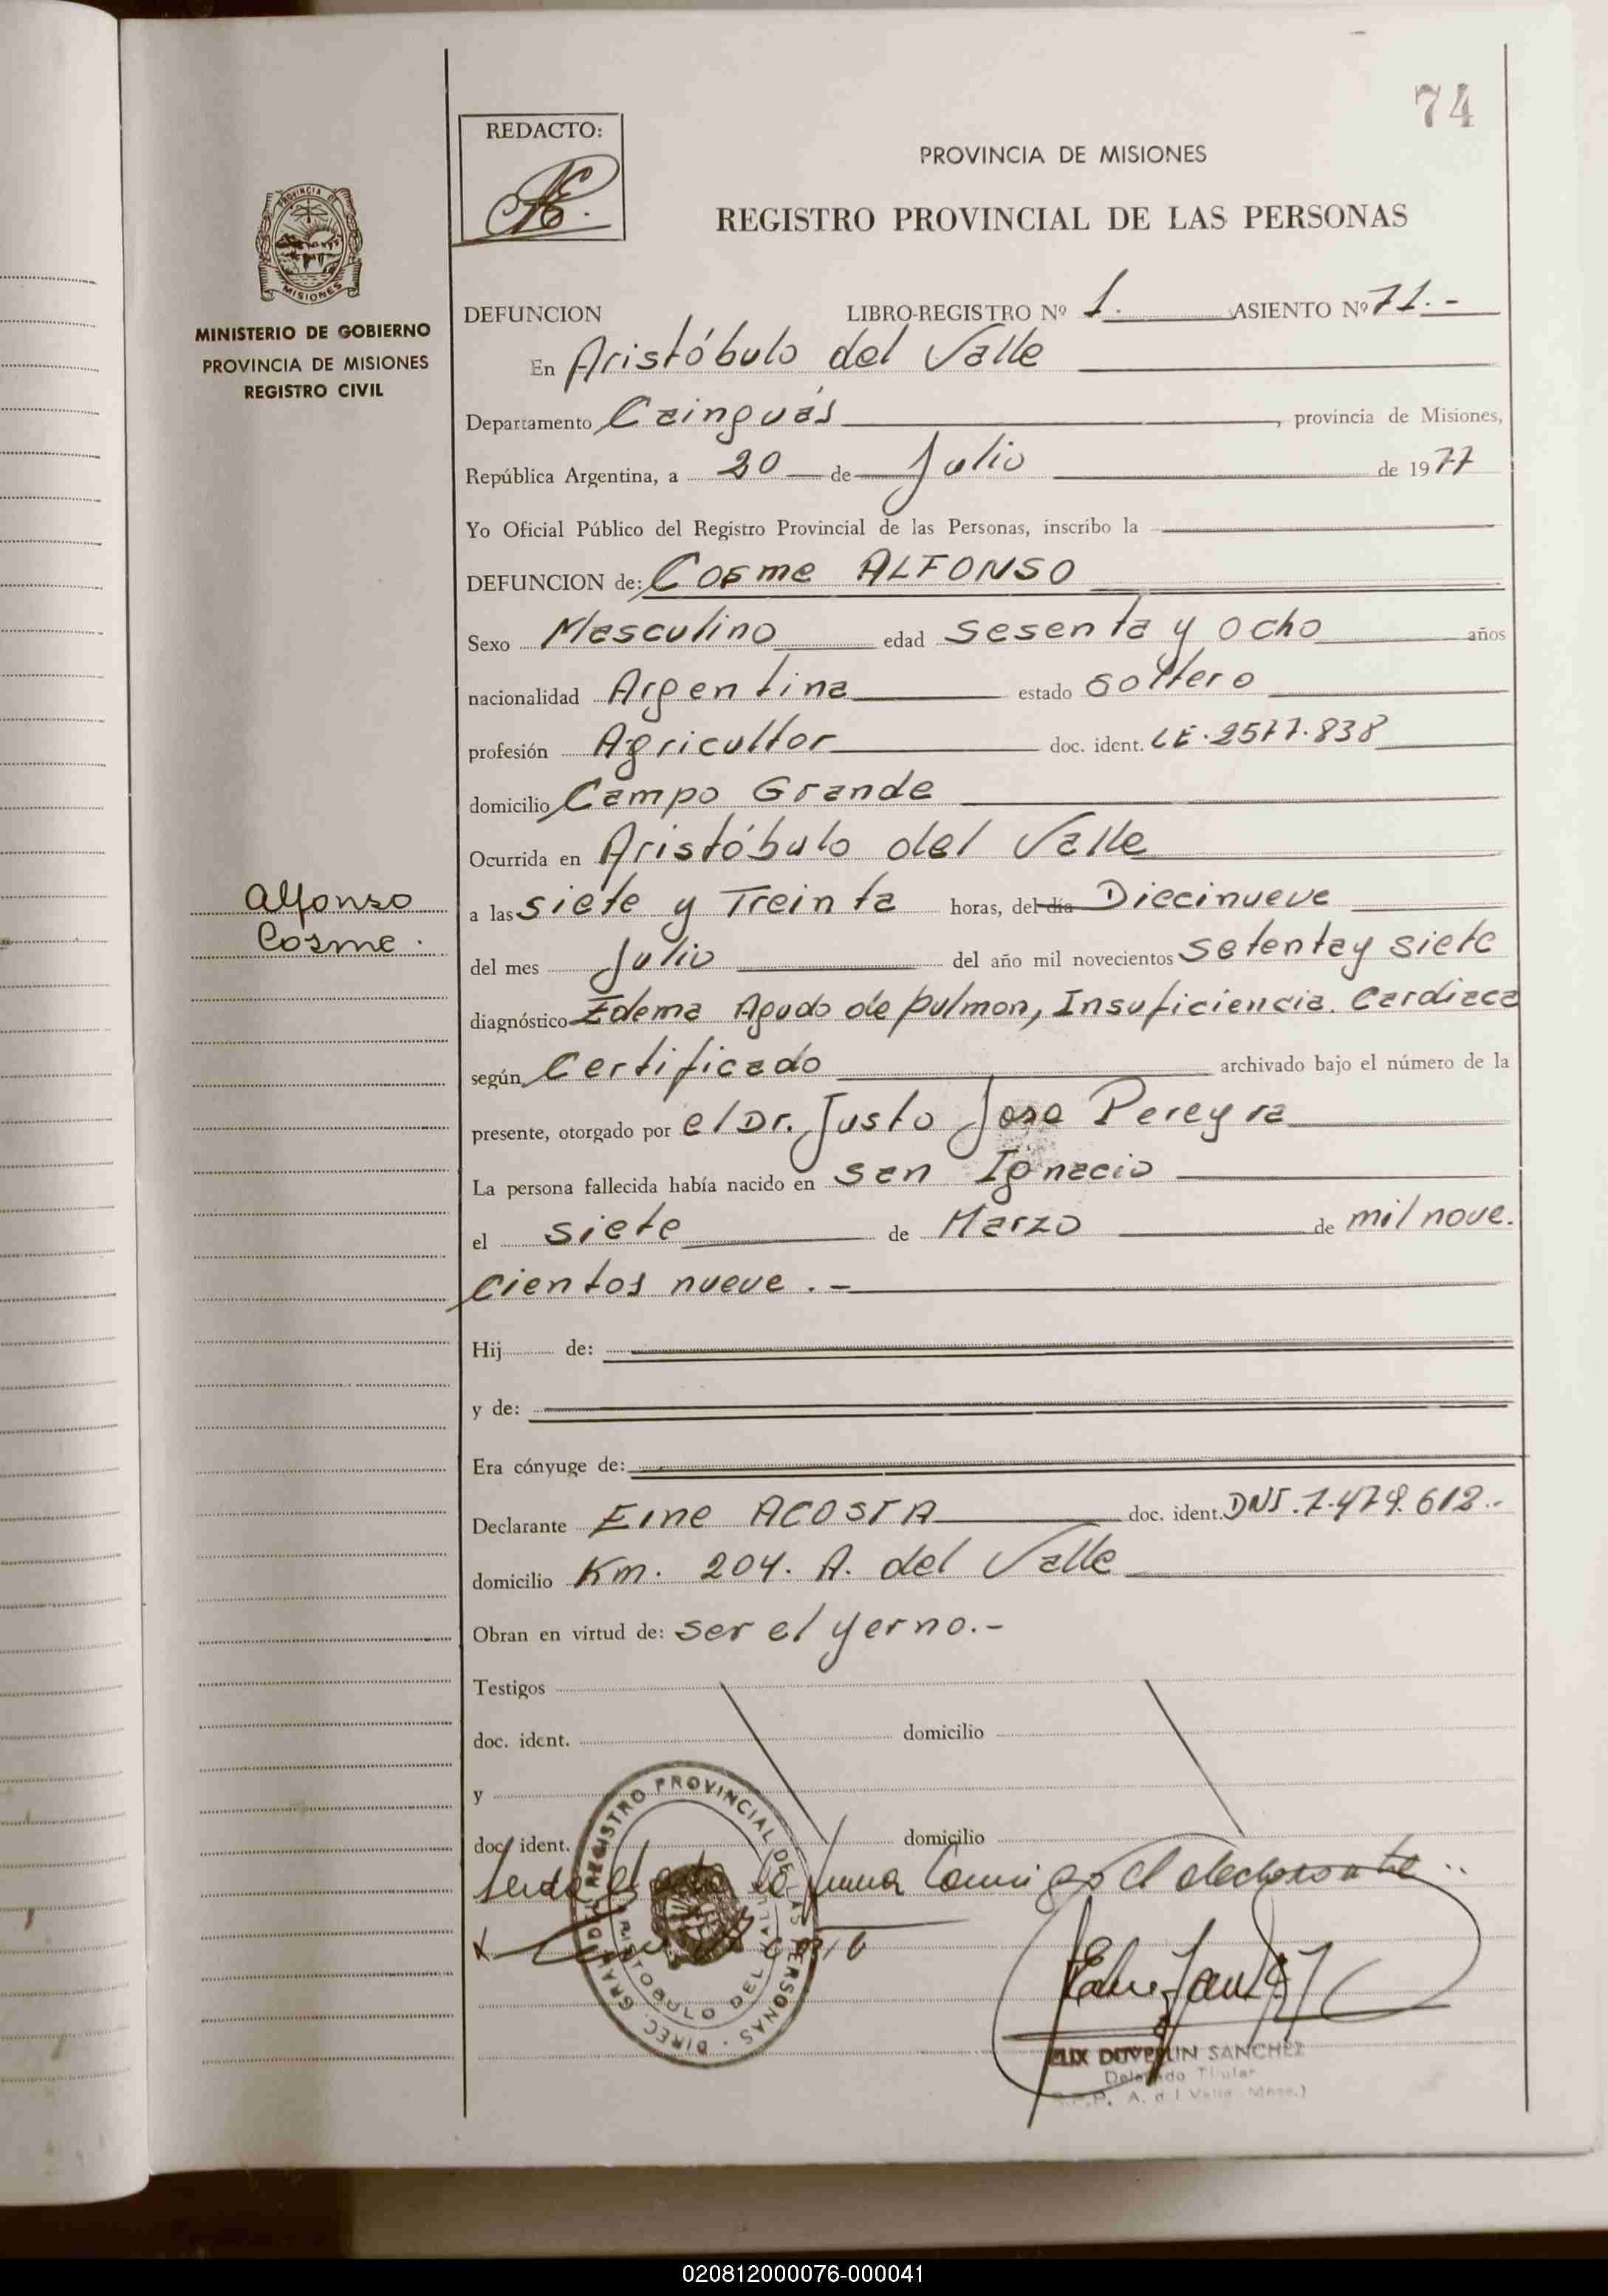 74
REDACTO:
PROVINCIA DE MISIONES
REGISTRO PROVINCIAL DE LAS PERSONAS
PROVINCIA DE
MISIONES
MINISTERIO DE GOBIERNO
PROVINCIA DE MISIONES
REGISTRO CIVIL
DEFUNCION LIBRO-REGISTRO Nº 1. ASIENTO Nº 71.-
En Aristóbulo del Valle
Departamento Cainguás, provincia de Misiones,
República Argentina, a 20 de Julio de 1977
Yo Oficial Público del Registro Provincial de las Personas, inscribo la
DEFUNCION de: Cosme ALFONSO
Sexo Masculino edad Sesenta y ocho años
nacionalidad Argentina estado soltero
profesión Agricultor doc. ident. LE. 2577.838
domicilio Campo Grande
Ocurrida en Aristóbulo del Valle
Alfonso
Cosme.
a las siete y Treinta horas, del día Diecinueve
del mes Julio del año mil novecientos setenta y siete
diagnóstico Edema Agudo de pulmon, Insuficiencia. Cardiaca
según Certificado archivado bajo el número de la
presente, otorgado por el Dr. Justo Jose Pereyra
La persona fallecida había nacido en San Ignacio
el siete de Marzo de mil nove.
cientos nueve.-
Hij de:
y de:
Era cónyuge de:
Declarante Eine ACOSTA doc. ident. DNI. 7.479.612.-
domicilio Km. 204. A. del Valle
Obran en virtud de: ser el yerno.-
Testigos
doc. ident. domicilio
y
doc. ident. domicilio
Leida el acta la firma conmigo el declarante..
REGISTRO PROVINCIAL DE LAS PERSONAS · DIREC. GRAL. DEL
ARISTOBULO DEL VALLE
ELIX DUVERLIN SANCHEZ
Delegado Titular
R.P.P. A. del Valle (Mnes.)
020812000076-000041